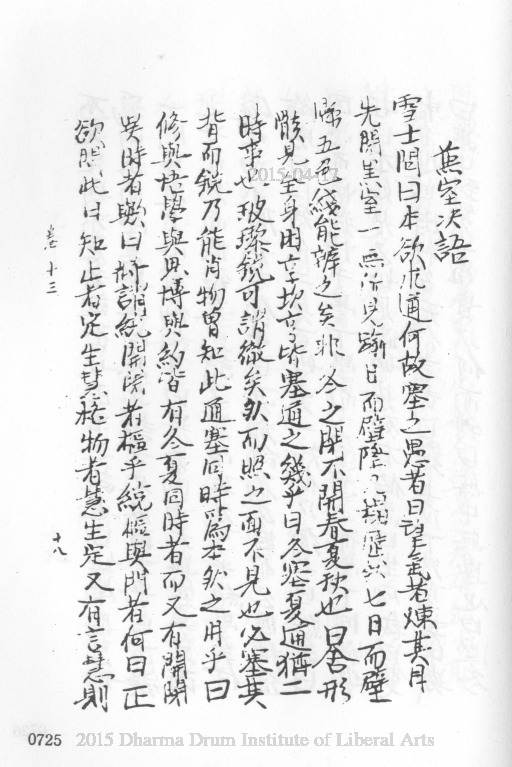 燕室决語
雪士問曰本欲求道何故塞之愚者曰望氣者煉其目
先閉黑室一無所見踰日而壁隙 七日而壁
五色綫能辨之矣非冬之閉不開春夏秋也曰舍形
骸見全身困亨坎亨皆塞通之幾乎曰冬塞夏通猶二
時事也玻瓈鏡可謂徹矣然而照之面不見也必塞其
背而鏡乃能肖物曾知此通塞同時爲本然之用乎曰
修與悟學與思博與約皆有冬夏同時者而又有開閉
異時者歟曰將謂統開閉者樞乎統樞與門者何曰正
欲問此曰知止者定生慧格物者慧生定又有言慧則
卷十三
十八
2015-04-03
0725 2015 Dharma Drum Institute of Liberal Arts